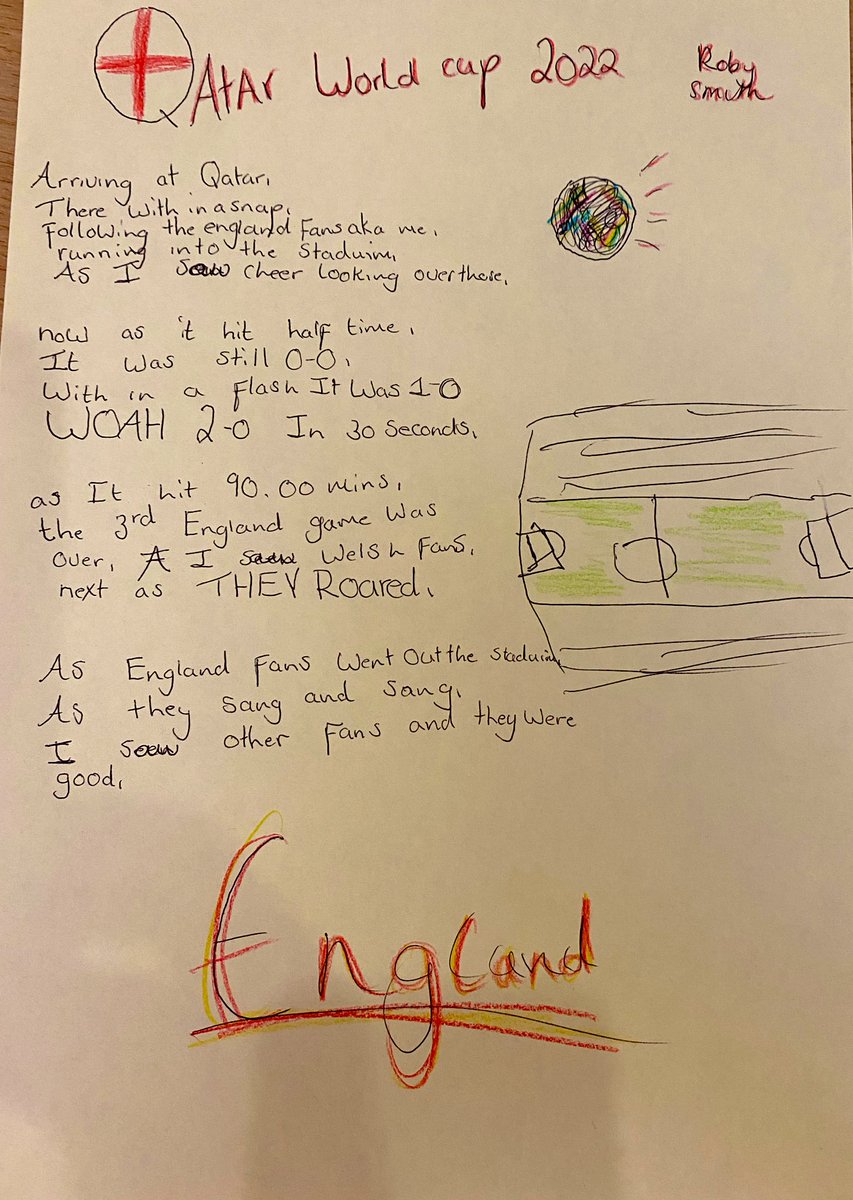 QAtAr World cup 2022
Roby
Smouth
Arriving at Qatar,
There with in a snap,
following the england Fans aka me,
running into the Staduim,
As I saw cheer looking over there,
now as it hit half time,
It was still 0-0,
With in a flash It Was 1-0
WOAH 2-0 In 30 Seconds,
as It hit 90.00 mins,
the 3rd England game was
over, A I saw Welsh Fans,
next as THEY Roared,
As England Fans Went Out the Staduim,
As they sang and sang,
I saw other fans and they were
good,
England